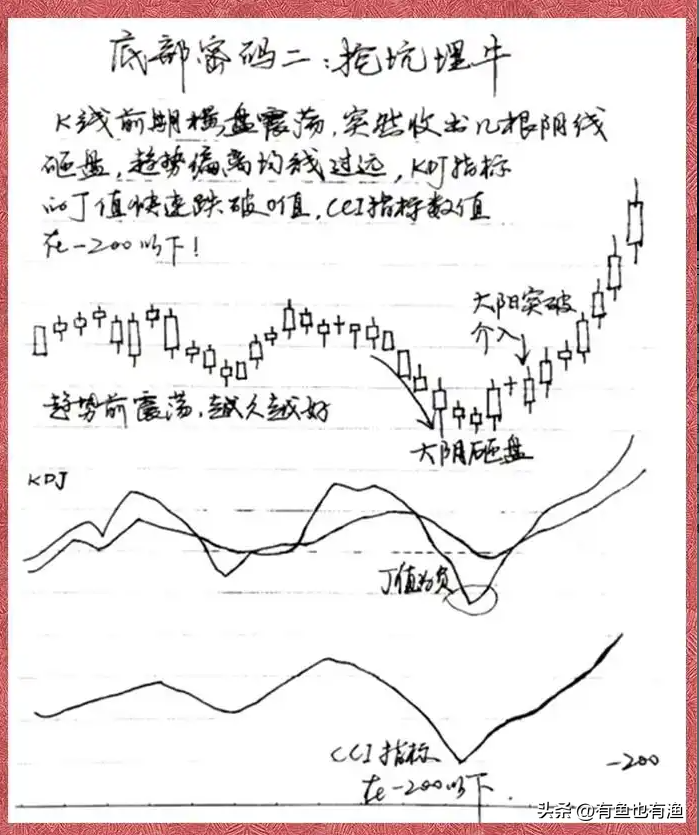 底部密码二:挖坑埋牛
K线前期横盘震荡,突然收出几根阴线
砸盘,趋势偏离均线过远,KDJ指标
的J值快速跌破0值,CCI指标数值
在-200以下!
大阳突破
介入
趋势前震荡,越久越好
大阴砸盘
KDJ
J值为负
CCI指标
在-200以下.
-200
头条 @有鱼也有渔